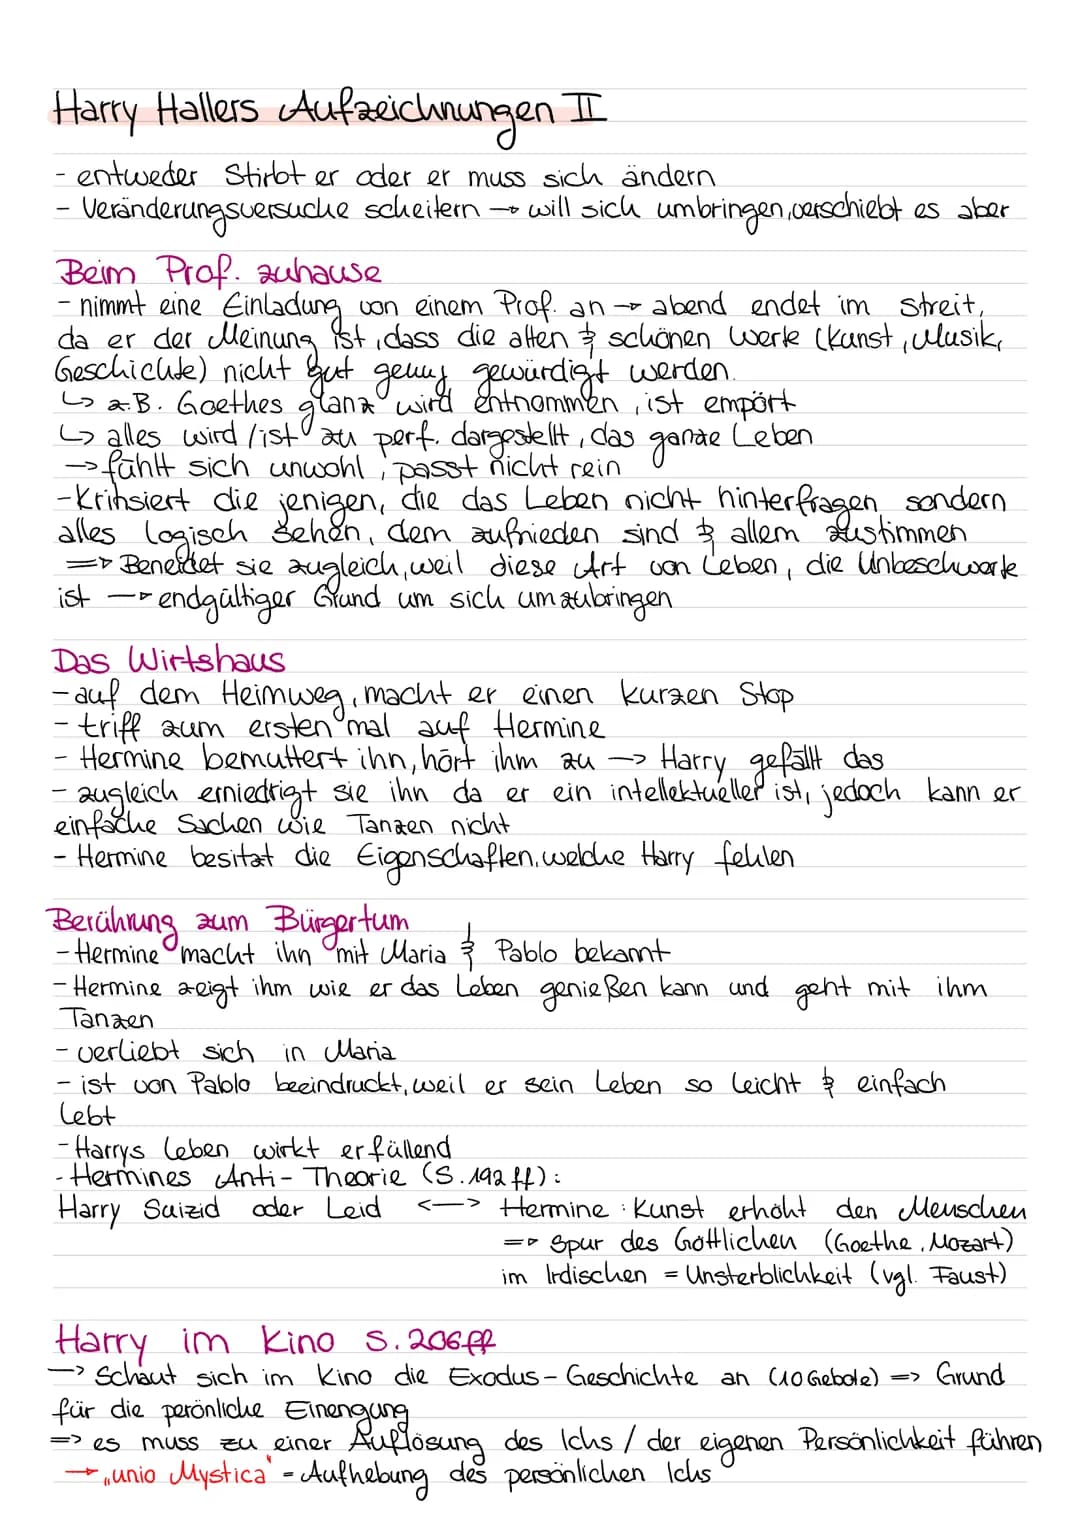 Harry Hallers Aufzeichnungen II
- entweder Stirbt er oder er muss sich ändern
- Veränderungsversuche scheitern → will sich umbringen, verschiebt es aber
Beim Prof. zuhause
- nimmt eine Einladung von einem Prof. an → abend endet im Streit,
da er der Meinung ist, dass die alten & schönen Werke (Kunst, Musik,
Geschichte) nicht gut genug gewürdigt werden.
↳ z.B. Goethes glanz wird entnommen, ist empört
↳ alles wird / ist zu perf. dargestellt, das ganze Leben
→ fühlt sich unwohl, passt nicht rein
- Kritisiert die jenigen, die das Leben nicht hinterfragen sondern
alles logisch sehen, dem zufrieden sind & allem zustimmen
⇒ Beneidet sie zugleich, weil diese Art von Leben, die Unbeschwerte
ist → endgültiger Grund um sich umzubringen
Das Wirtshaus
- auf dem Heimweg, macht er einen kurzen Stop
- triff zum ersten mal auf Hermine
- Hermine bemuttert ihn, hört ihm zu → Harry gefällt das
- zugleich erniedrigt sie ihn da er ein intellektueller ist, jedoch kann er
einfache Sachen wie Tanzen nicht
- Hermine besitzt die Eigenschaften, welche Harry fehlen
Berührung zum Bürgertum
- Hermine macht ihn mit Maria & Pablo bekannt
- Hermine zeigt ihm wie er das Leben genießen kann und geht mit ihm
Tanzen
- verliebt sich in Maria
- ist von Pablo beeindruckt, weil er sein Leben so leicht & einfach
lebt
- Harrys Leben wirkt erfüllend
- Hermines Anti-Theorie (S. 192 ff):
Harry Suizid oder Leid <—> Hermine: Kunst erhöht den Menschen
⇒ Spur des Göttlichen (Goethe, Mozart)
im Irdischen = Unsterblichkeit (vgl. Faust)
Harry im Kino S. 206ff
→ Schaut sich im Kino die Exodus-Geschichte an (10 Gebote) => Grund
für die perönliche Einengung
=> es muss zu einer Auflösung des Ichs / der eigenen Persönlichkeit führen
→ „unio Mystica" - Aufhebung des persönlichen Ichs